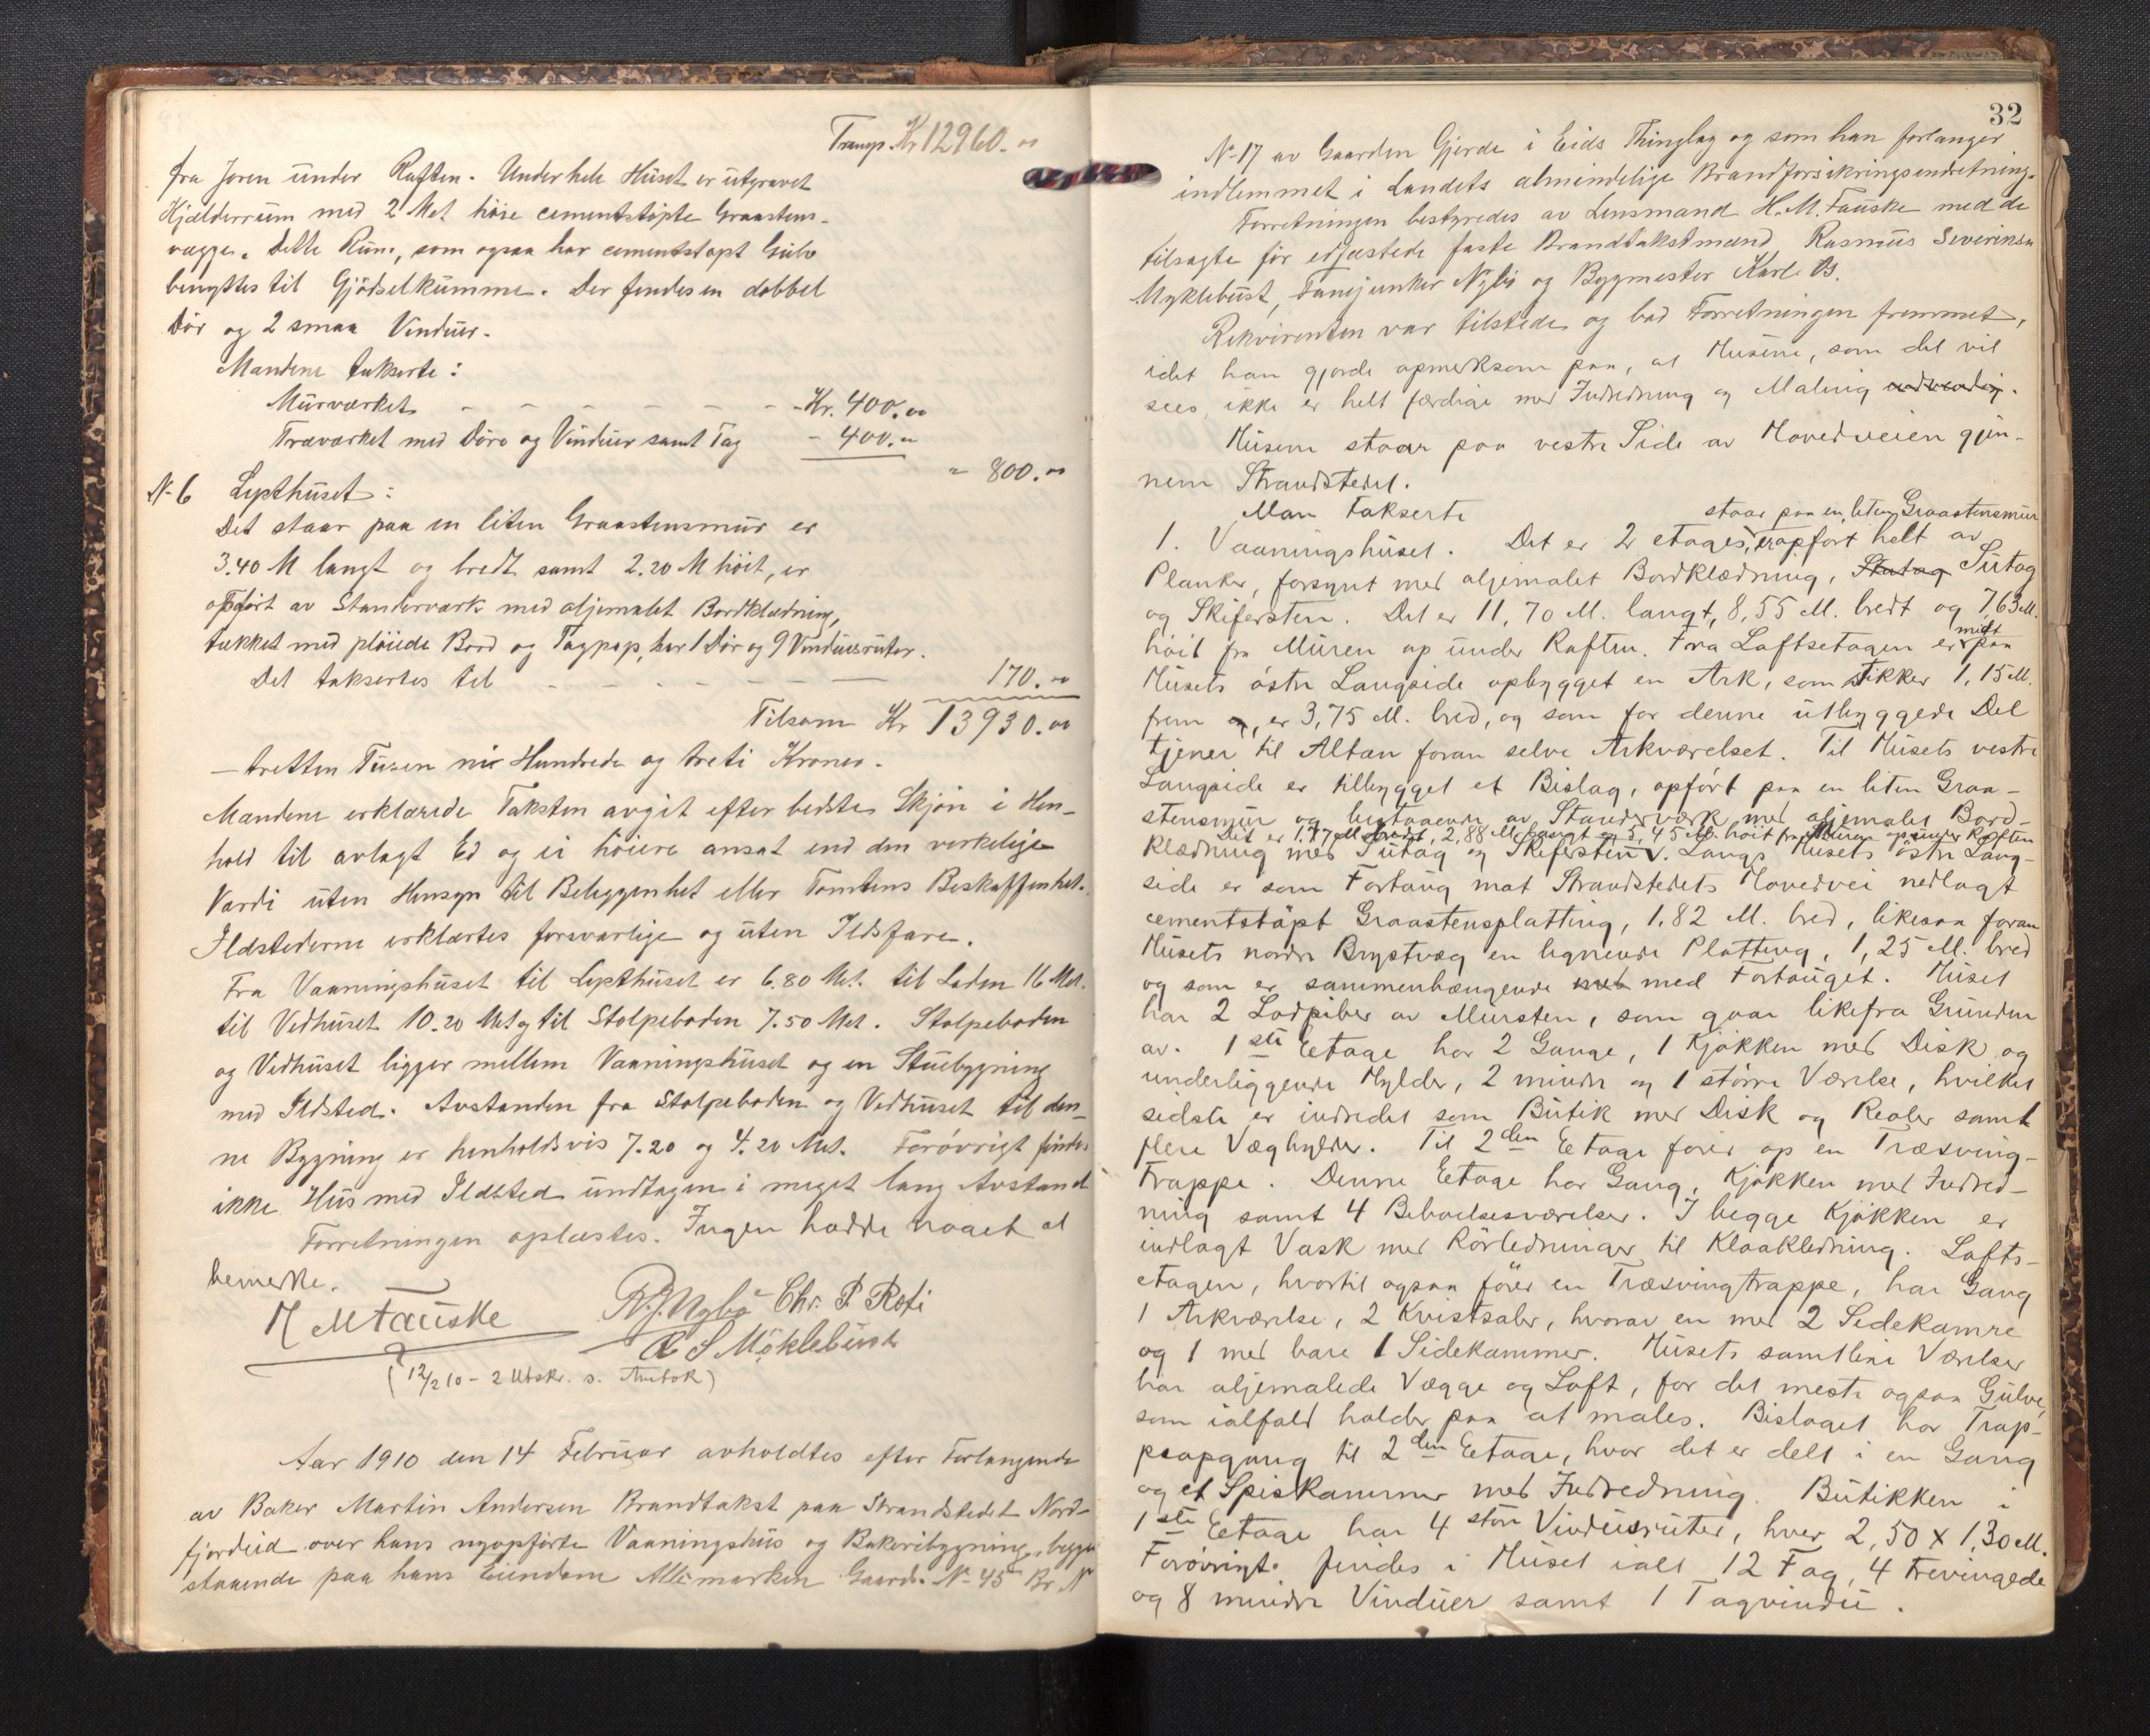 Transp. Kr 12960.00
fra Joren under Raften. Under hele Huset er utgravet
Kjælderrum med 2 Met høie cementstøpte Graastens-
vægge. Dette Rum, som ogsaa har cementstøpt Gulv
benyttes til Gjødselkumme. Der findes en dobbel
Dør og 2 smaa Vinduer.
Mændene takserte:
Murværket - - - - - - - Kr. 400.00
Træværket med Døre og Vinduer samt Tag - 400.00
" 800.00
N- 6 Lysthuset:
Det staar paa en liten Graastensmur er
3.40 M langt og bredt samt 2.20 M høit, er
opført av Stænderværk med oljemalet Bordklædning,
tækket med pløiede Bord og Tagpap, har 1 Dør og 9 Vinduesruter.
Det takseres til - - - - - 170.00
Tilsam Kr 13930.00
— tretten Tusen ni Hundrede og treti Kroner.
Mændene erklærede Taksten avgit efter bedste Skjøn i Hen-
hold til avlagt Ed og ei høiere ansat end den virkelige
Værdi uten Hensyn til Beliggenhet eller Tomtens Beskaffenhet.
Ildstederne erklærtes forsvarlige og uten Ildsfare.
Fra Vaaningshuset til Lysthuset er 6.80 Met. til Laden 16 Met.
til Vedhuset 10.20 Met og til Stolpeboden 7.50 Met. Stolpeboden
og Vedhuset ligger mellem Vaaningshuset og en Stuebygning
med Ildsted. Avstanden fra Stolpeboden og Vedhuset til den-
ne Bygning er henholdsvis 7.20 og 4.20 Met. Forøvrigt findes
ikke Hus med Ildsted undtagen i meget lang Avstand
Forretningen oplæstes. Ingen hadde noget at
bemerke.
H M Fauske R. J. Nybø Chr. P. Roti
R S Möklebust
(12/2 10 - 2 Utskr. s.
Aar 1910 den 14 Februar avholdtes efter Forlangende
av Baker Martin Andersen Brandtakst paa Strandstedet Nord-
fjordeid over hans nyopførte Vaaningshus og Bakeribygning, begge
staaende paa hans Eiendom Allemarken Gaards N- 45 Br. N
32
N- 17 av Gaarden Gjerde i Eids Thinglag og som han forlanger
indlemmet i Landets almindelige Brandforsikringsindretning.
Forretningen bestyredes av Lensmand H. M. Fauske med de
tilsagte før edfæstede faste Brandtakstmænd Rasmus Severinsen
Myklebust, Fanejunker Nybø og Bygmester Karl B.
Rekvirenten var tilstede og bad Forretningen fremmet,
idet han gjorde opmerksom paa, at Husene, som det vil
sees, ikke er helt færdige med Indredning og Maling udvendig.
Husene staar paa vestre Side av Hovedveien gjen-
nem Strandstedet.
Man takserte
1. Vaaningshuset. Det er 2 etages, staar paa en liten Graastensmur er opført helt av
Planker, forsynt med oljemalet Bordklædning, Sutag
og Skifersten. Det er 11,70 M. langt, 8,55 M. bredt og 7,63 M.
høit fra Muren op under Raften. Fra Loftsetagen er midt paa
Husets østre Langside opbygget en Ark, som stikker 1,15 M.
frem og er 3,75 M. bred, og som for denne utbyggede Del
tjener til Altan foran selve Arkværelset. Til Husets vestre
Langside er tilbygget et Bislag, opført paa en liten Graa-
stensmur og bestaaende av Stænderværk med oljemalet Bord-
klædning med Sutag og Skifersten. Det er 1,77 M. bredt, 2,88 M. langt og 5,45 M. høit fra Muren op under Raften
Langs Husets østre Lang-
side er som Fortaug mot Strandstedets Hovedvei nedlagt
cementstøpt Graastensplatting, 1,82 M. bred, likesaa foran
Husets nordre Brystvæg en lignende Platting, 1,25 M. bred
og som er sammenhængende med med Fortauget. Huset
har 2 Lodpiber av Mursten, som gaar like fra Grunden
av. 1ste Eetage har 2 Gange, 1 Kjøkken med Disk og
underliggende Hylder, 2 mindre og 1 større Værelse, hvilket
sidste er indredet som Butik med Disk og Reoler samt
flere Væghylder. Til 2den Eetage fører op en Træsving-
trappe. Denne Eetage har Gang, Kjøkken med Indred-
ning samt 4 Beboelsesværelser. I begge Kjøkken er
indlagt Vask med Rørledninger til Kloakledning. Lofts-
etagen, hvortil ogsaa fører en Træsvingtrappe, har Gang
1 Arkværelse, 2 Kvistsaler, hvorav en med 2 Sidekamre
og 1 med bare 1 Sidekammer. Husets samtlige Værelser
har oljemalede Vægge og Loft, for det meste ogsaa Gulve,
som ialfald holder paa at males. Bislaget har Trap-
peopgang til 2den Eetage, hvor det er delt i en Gang
og et Spiskammer med Indredning. Butikken i
1ste Eetage har 4 store Vinduesruter, hver 2,50 x 1,30 M.
Forøvrigt findes i Huset ialt 12 Fag, 4 trevingede
og 8 mindre Vinduer samt 1 Tagvindu.